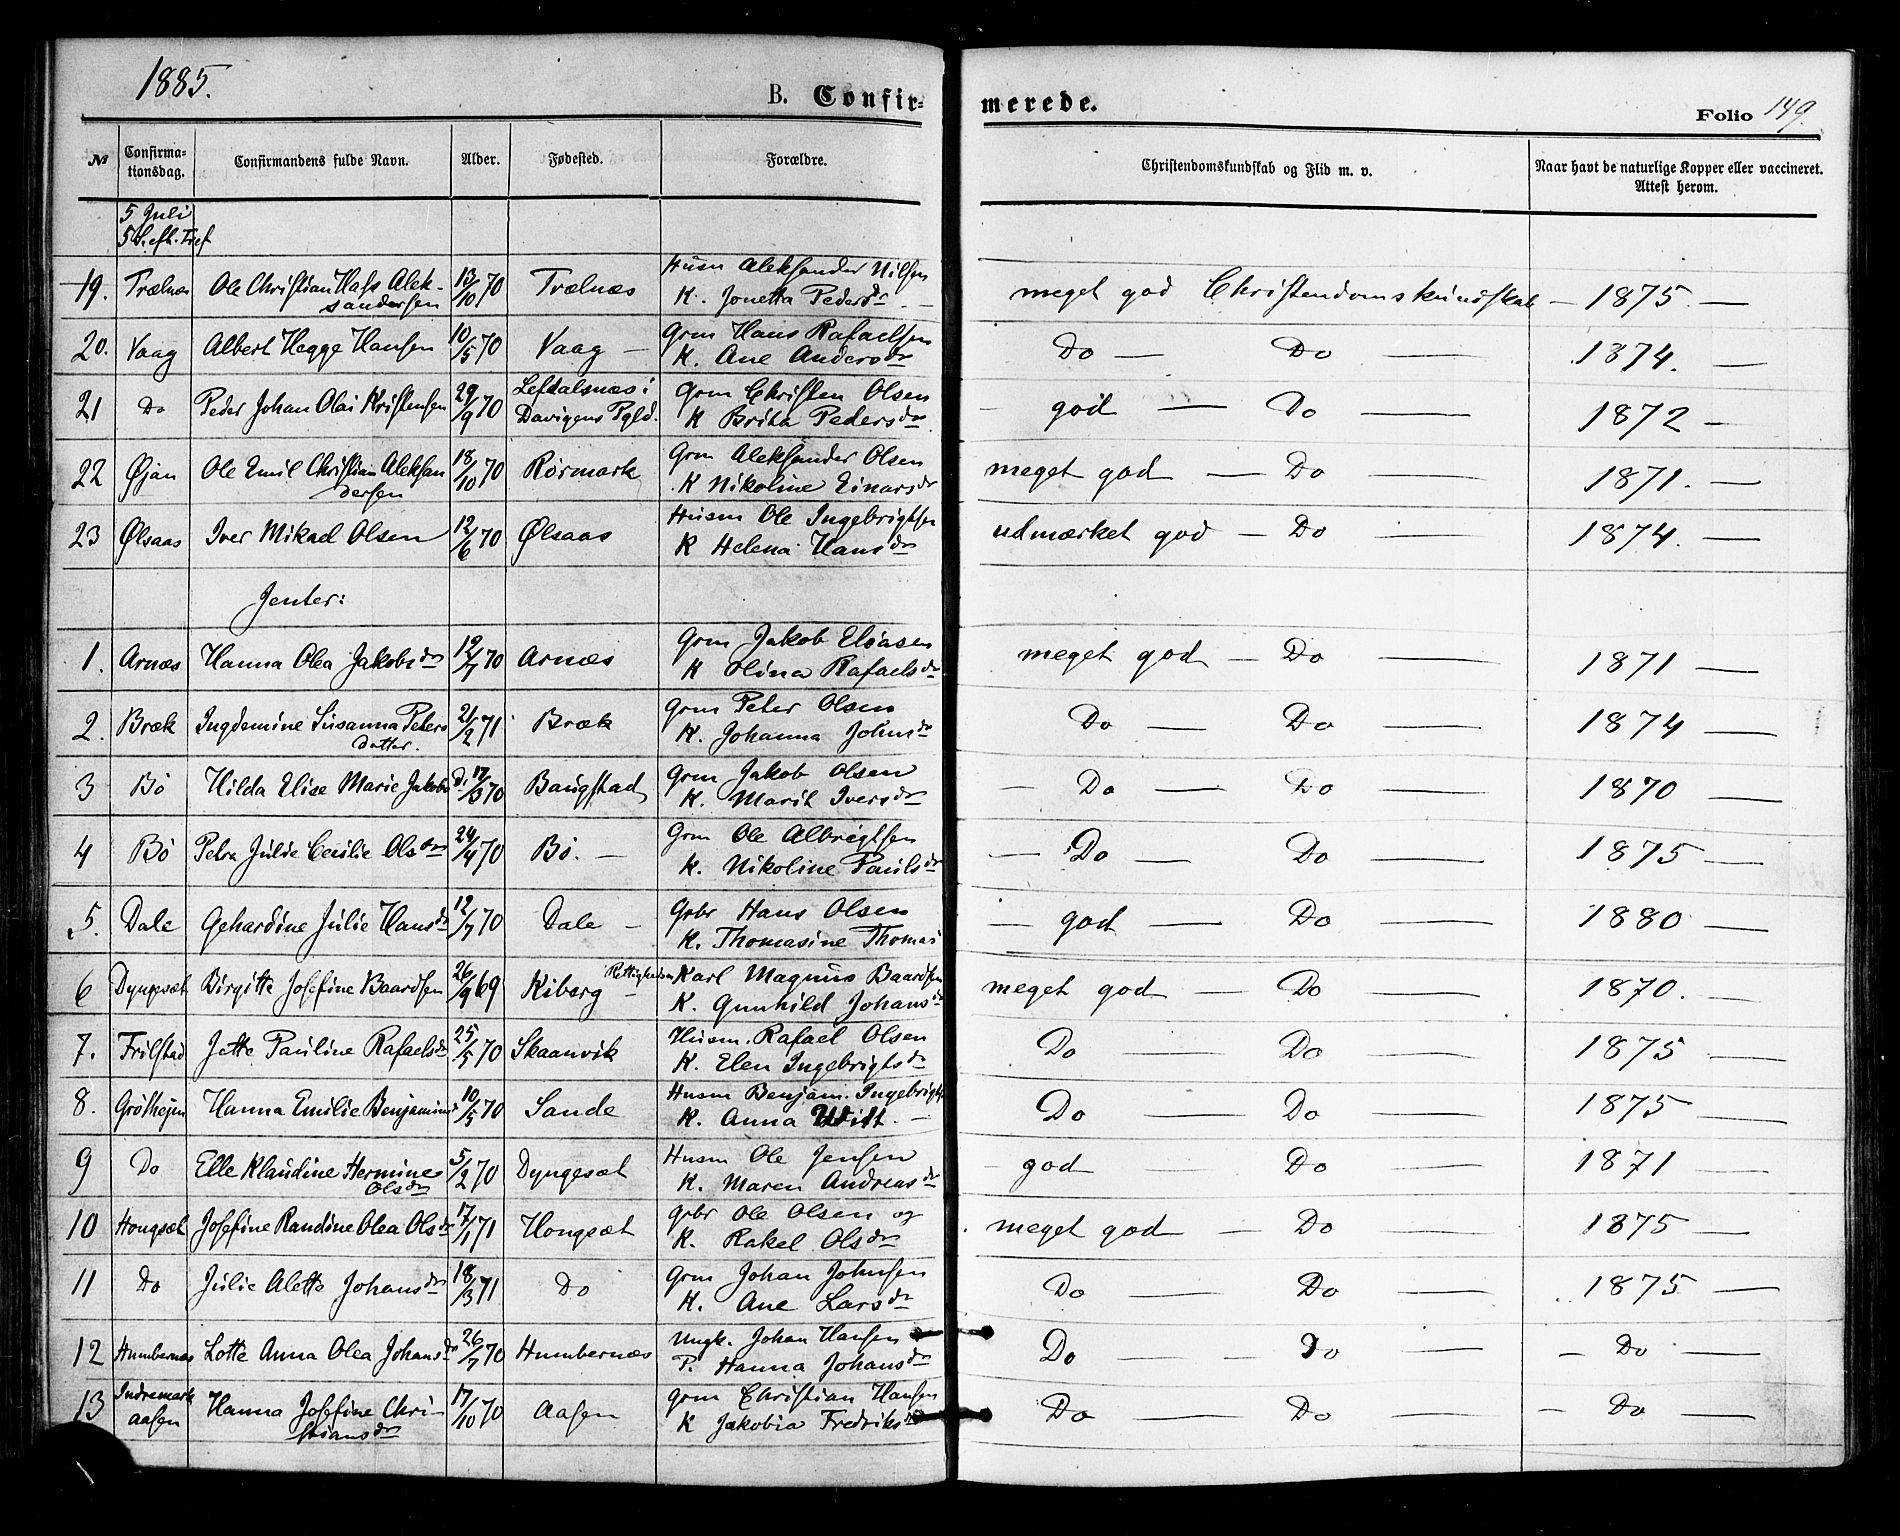 1885.
B. Confir-
merede.
Folio 149.
№ Confirma-tionsdag. Confirmandens fulde Navn. Alder. Fødested. Forældre. Christendomskundskab og Flid m. v. Naar havt de naturlige Kopper eller vaccineret. Attest herom.
5 Juli
5 S. eft. Tref
19. Trælnes Ole Christian Hass Alek- 13/10 70 Trælnæs Husm Aleksander Nilsen meget god Christendomskundskab — 1875. —
sandersen K. Jonetta Pedersdr —
20. Vaag Albert Hegge Hansen 10/5 70 Vaag — Grm Hans Rafaelsen Do — Do — 1874. —
K. Ane Andersdr
21 Do Peder Johan Olai Kristensen 29/9 70 Lefdalsnæs i Grm Christen Olsen — god — Do — 1872 —
Davigens Pgld. K Britha Pedersdr
22 Øjan Ole Emil Christian Aleksan 18/10 70 Rørmark Grm Aleksander Olsen meget god — Do — 1871. —
dersen K Nikoline Einarsdr
23 Ølsaas Iver Mikael Olsen 12/6 70 Ølsaas Husm Ole Ingebrigtsen udmærket god — Do — 1874. —
K Helena Hansdr
Jenter:
1. Arnæs Hanna Olea Jakobsdr 12/7 70 Arnæs Grm Jakob Eliasen meget god — Do — 1871 —
K Olina Rafaelsdr
2. Bræk Ingdemine Susanna Peters 21/2 71 Bræk Grm Peter Olsen Do — Do — 1874 —
datter. K. Johanna Johnsdr
3 Bø Hilda Elise Marie Jakobsd. 17/3 70 Baugstad Grm Jakob Olsen — Do — Do — 1870 —
K. Marit Iversdr
4 Bø Petra Julie Cecilie Olsdr 24/4 70 Bø. — Grm Ole Albrigtsen — Do — Do — 1875 —
K. Nikoline Paulsdr
5. Dale Gehardine Julie Hansdr 12/7 70 Dale — Gbr Hans Olsen — god — Do — 1880 —
K. Thomasine Thomas
6 Dyngesæt Birgitte Josefine Baardsen 26/9 69 Kiberg — Rettighedsm Karl Magnus Baardsen meget god — Do — 1870. —
K. Gunhild Johansdr
7. Frilstad Jette Pauline Rafaelsdr 25/5 70 Skaanvik Husm. Rafael Olsen Do — Do — 1875 —
K. Elen Ingebrigtsdr
8. Grøthejen Hanna Emilie Benjaminsd 10/5 70 Sande Husm Benjam. Ingebrigts Do — Do — 1875 —
K. Anna Witt. —
9 Do Elle Klaudine Hermine 5/2 70 Dyngesæt Husm Ole Jensen god Do — 1871 —
Olsdr K. Maren Andreasdr
10 Hongsæt Josefine Randine Olea Olsdr 17/1 71 Hongsæt Gbr Ole Olsen og meget god — Do — 1875 —
K. Rakel Olsdr
11 Do Julie Alette Johansdr 18/3 71 Do Grm Johan Johnsen Do — Do — 1875 —
K. Ane Larsdr
12 Humbernæs Lotte Anna Olea Johansdr 26/7 70 Humbernæs Ungk. Johan Hansen Do — Do — — Do —
P. Hanna Johansdr
13 Indremark Hanna Josefine Chri- 17/10 70 Aasen Grm Christian Hansen Do — Do — — Do —
aasen stiansdr K Jakobia Fredriksdr